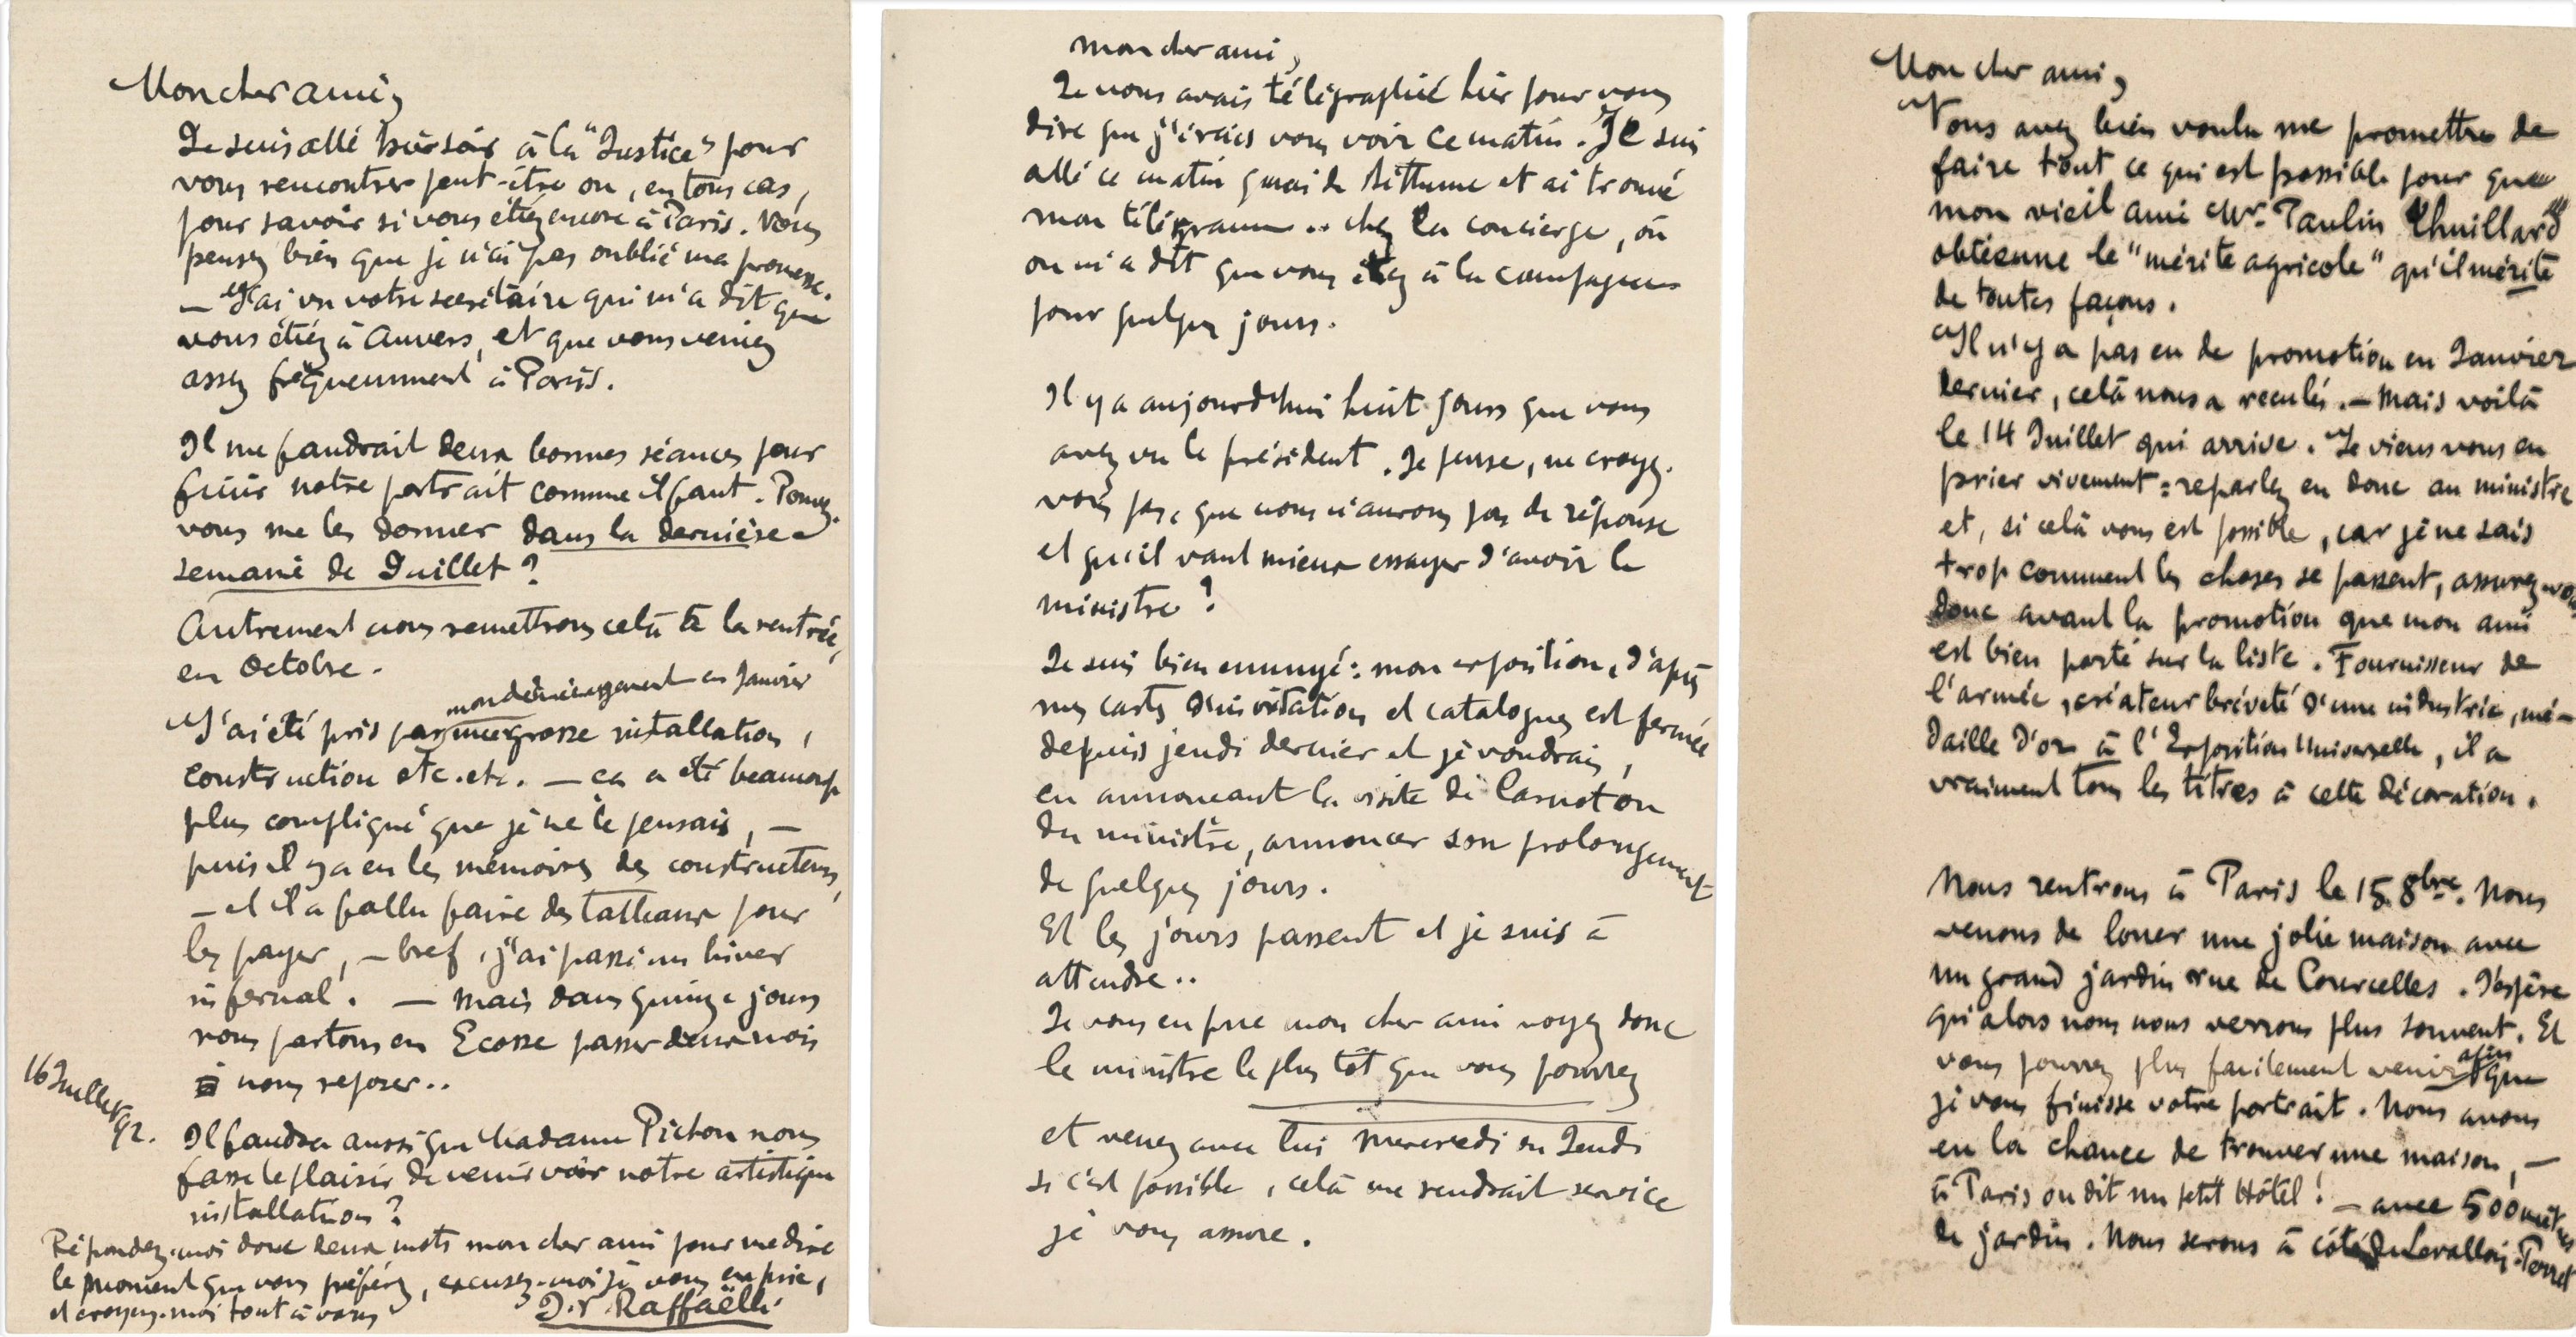 Mon cher ami,
Je suis allé hier soir à la "Justice" pour
vous rencontrer peut-être ou, en tous cas,
pour savoir si vous étiez encore à Paris. Vous
pensez bien que je n'ai pas oublié ma promesse.
— J'ai vu votre secrétaire qui m'a dit que
vous étiez à Anvers, et que vous veniez
assez fréquemment à Paris.
Il me faudrait deux bonnes séances pour
finir notre portrait comme il faut. Pouvez-
vous me les donner dans la dernière
semaine de Juillet ?
Autrement nous remettrons celà à la rentrée,
en Octobre.
mon déménagement en Janvier
J'ai été pris par une grosse installation,
construction etc. etc. — ça a été beaucoup
plus compliqué que je ne le pensais, —
puis il y a eu les mémoires des constructeurs,
— et il a fallu faire des tableaux pour
les payer, — bref, j'ai passé un hiver
infernal. — Mais dans quinze jours
nous partons en Ecosse passer deux mois
à nous reposer..
16 Juillet 92.
Il faudra aussi que Madame Pichon nous
fasse le plaisir de venir voir notre artistique
installation ?
Répondez-moi donc deux mots mon cher ami pour me dire
le moment que vous préférez, excusez-moi je vous en prie,
et croyez-moi tout à vous
J.F. Raffaëlli
mon cher ami,
Je vous avais télégraphié hier pour vous
dire que j'irais vous voir ce matin. Je suis
allé ce matin quai de Béthune et ai trouvé
mon télégramme .. chez la concierge, où
on m'a dit que vous étiez à la campagne
pour quelques jours.
Il y a aujourd'hui huit jours que vous
avez vu le président. Je pense, ne croyez-
vous pas, que nous n'aurons pas de réponse
et qu'il vaut mieux essayer d'avoir le
ministre ?
Je suis bien ennuyé : mon exposition, d'après
mes cartes d'invitations et catalogues est fermée
depuis jeudi dernier et je voudrais,
en annonçant la visite de Carnot ou
du ministre, annoncer son prolongement
de quelques jours.
Et les jours passent et je suis à
attendre..
Je vous en prie mon cher ami voyez donc
le ministre le plus tôt que vous pourrez
et venez avec lui Mercredi ou Jeudi
si c'est possible, celà me rendrait service
je vous assure.
Mon cher ami,
Vous avez bien voulu me promettre de
faire tout ce qui est possible pour que
mon vieil ami Mr. Paulin Lhuillard
obtienne le "mérite agricole" qu'il mérite
de toutes façons.
Il n'y a pas eu de promotion en Janvier
dernier, celà nous a reculés. — Mais voilà
le 14 Juillet qui arrive. Je viens vous en
prier vivement : reparlez en donc au ministre
et, si celà vous est possible, car je ne sais
trop comment les choses se passent, assurez-vous
donc avant la promotion que mon ami
est bien porté sur la liste. Fournisseur de
l'armée, créateur breveté d'une industrie, mé-
daille d'or à l'Exposition Universelle, il a
vraiment tous les titres à cette décoration.
Nous rentrons à Paris le 15 8bre. Nous
venons de louer une jolie maison avec
un grand jardin rue de Courcelles. J'espère
qu'alors nous nous verrons plus souvent. Et
vous pourrez plus facilement venir afin que
je vous finisse votre portrait. Nous avons
eu la chance de trouver une maison, —
à Paris on dit un petit Hôtel ! — avec 500 mètres
de jardin. Nous serons à côté de Levallois-Perret